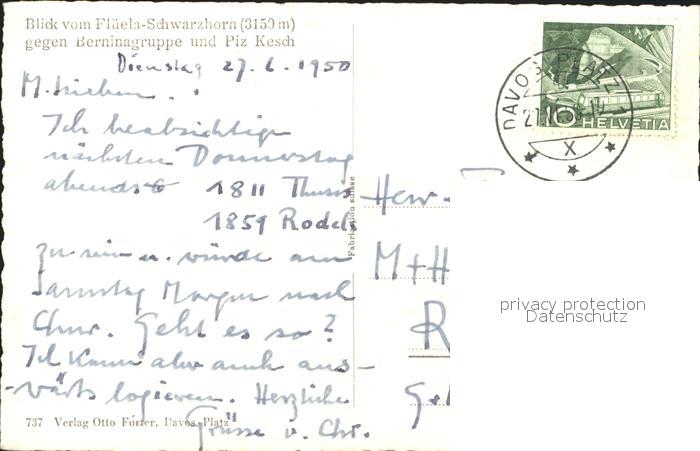 Blick vom Flüela-Schwarzhorn (3150 m)
gegen Berninagruppe und Piz Kesch
Dienstag 27. 6. 1950
M. Lieben.
Ich beabsichtige
nächsten Donnerstag
abends 1811 Thusis
1859 Rodels
zu sein u. würde am
Samstag Morgen nach
Chur. Geht es so?
Ich kann aber auch aus-
wärts logieren. Herzliche
Grüsse v. Chr.
737 Verlag Otto Furter, Davos-Platz
Fabrication suisse
DAVOS PLATZ
X
10 HELVETIA
Herr
M + H
R
privacy protection
Datenschutz